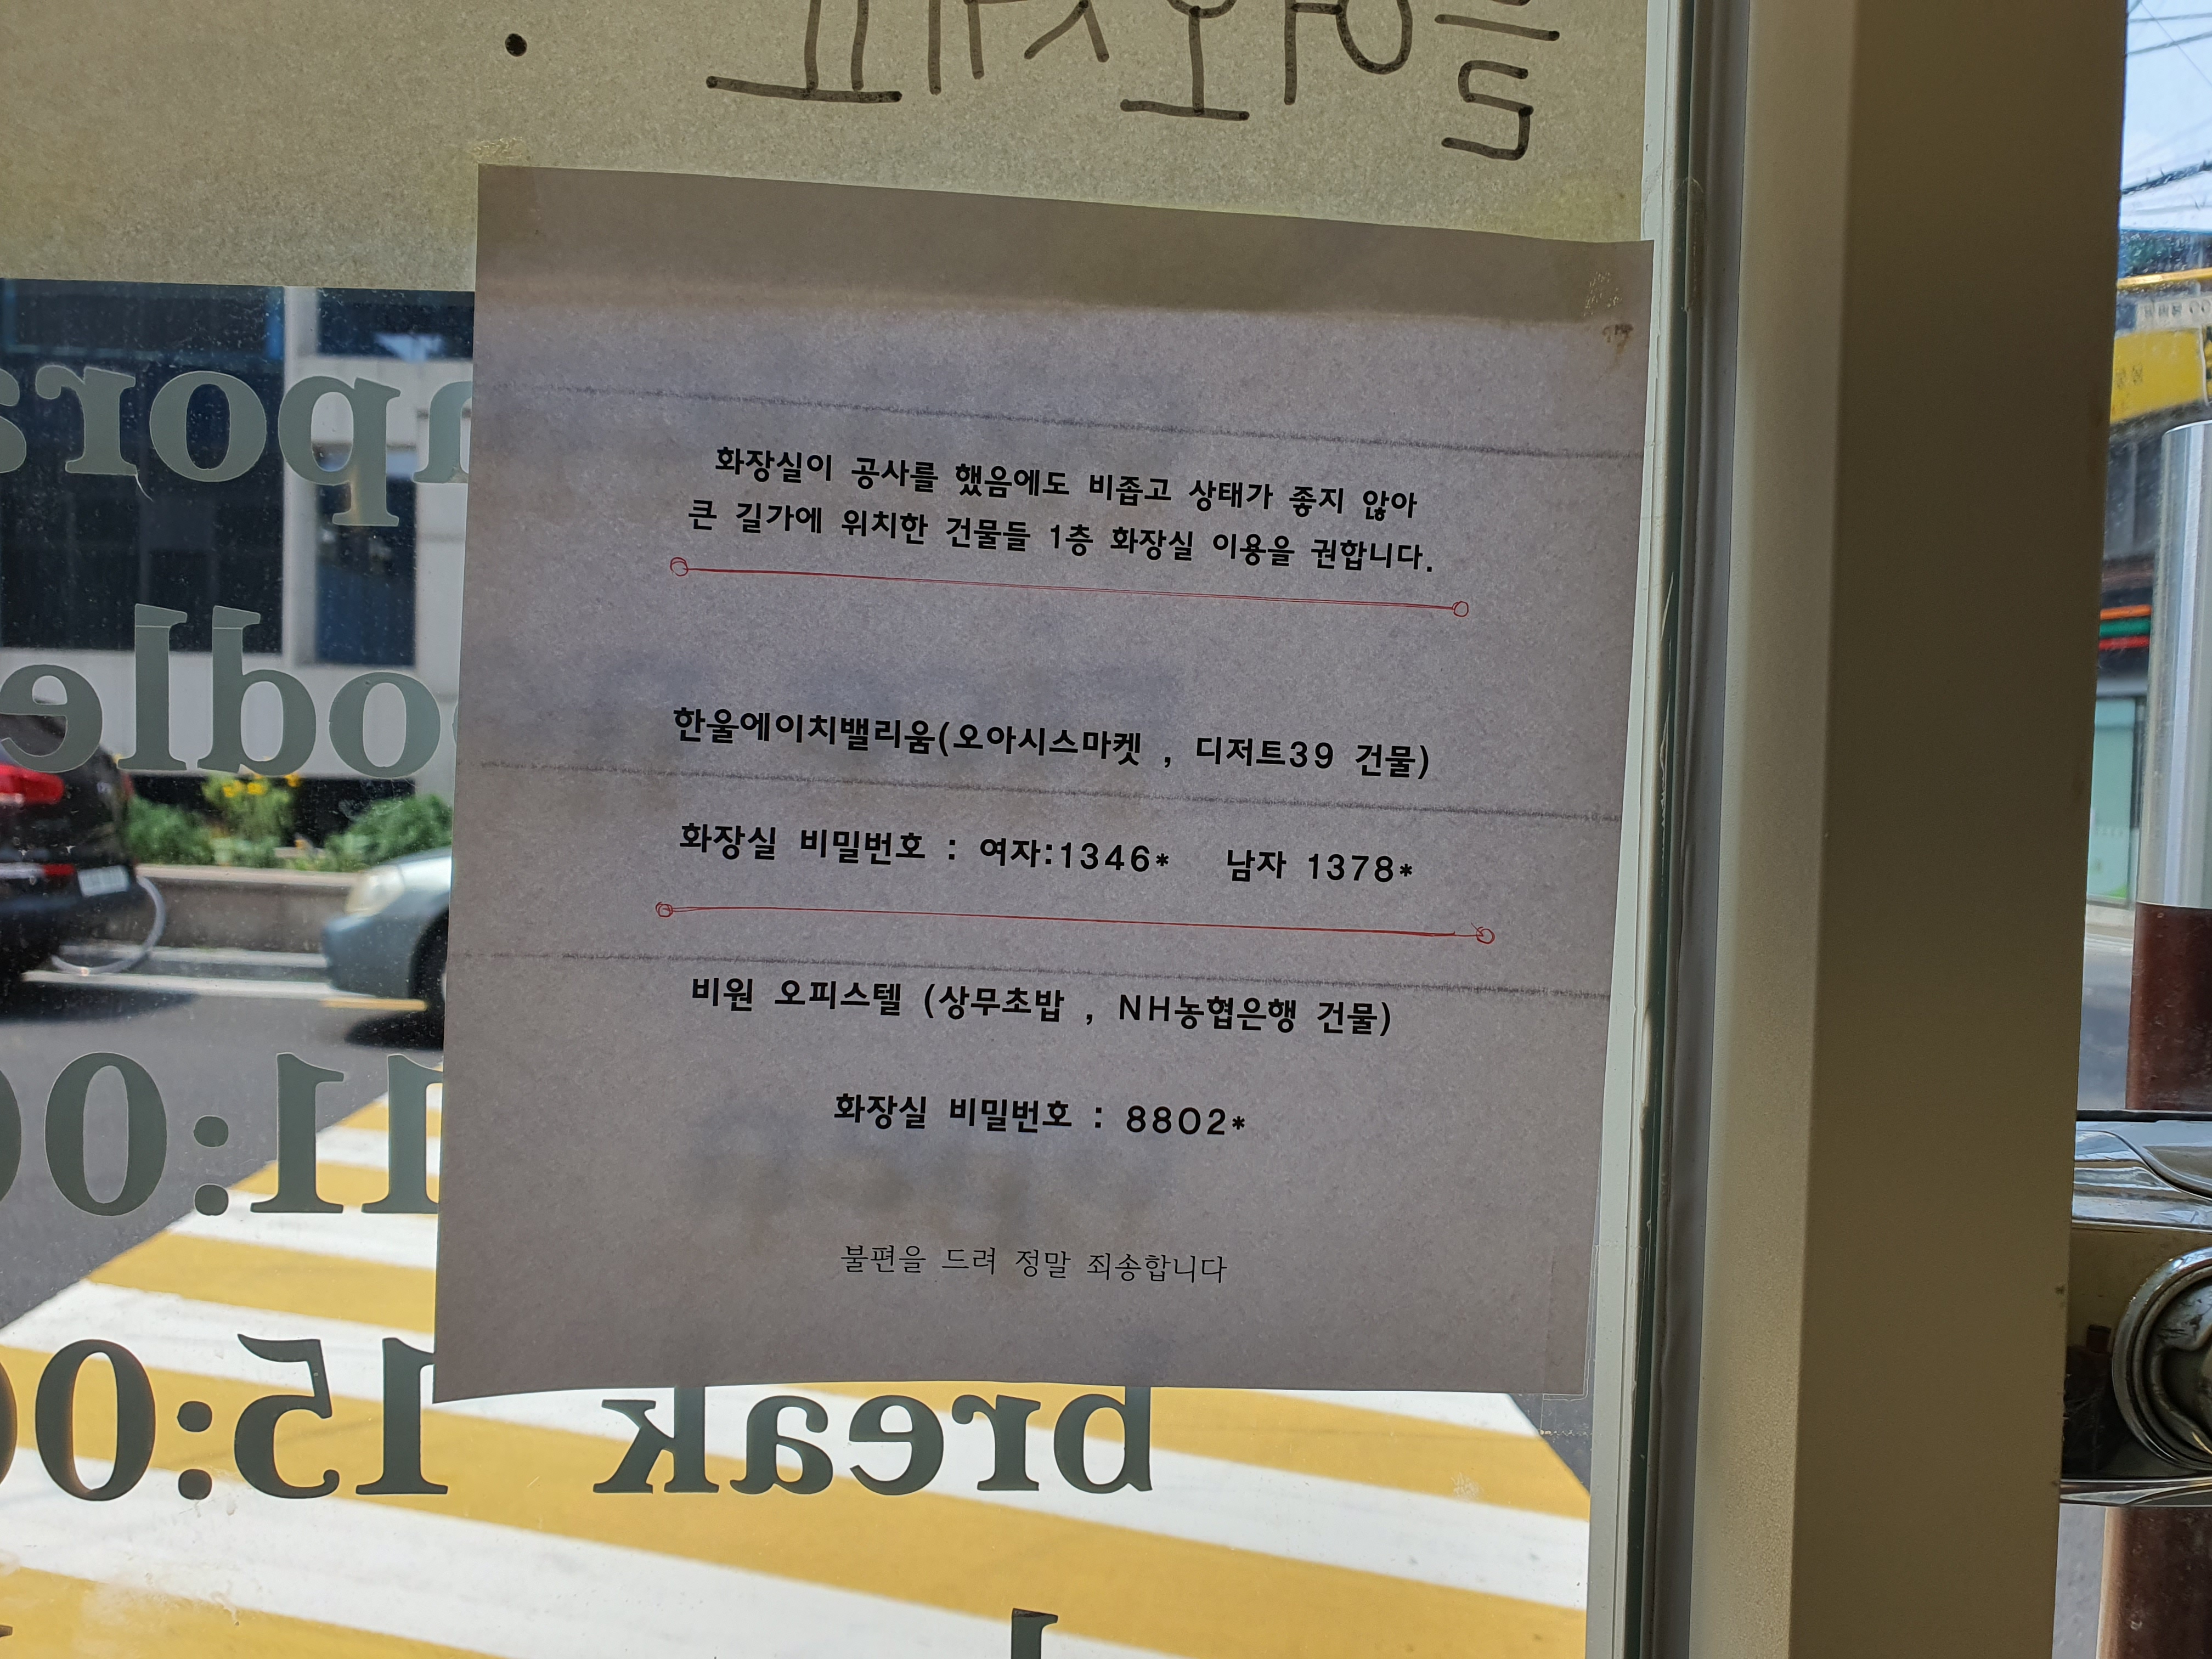 들어오세요
.
화장실이 공사를 했음에도 비좁고 상태가 좋지 않아
큰 길가에 위치한 건물들 1층 화장실 이용을 권합니다.
한울에이치밸리움(오아시스마켓 , 디저트39 건물)
화장실 비밀번호 : 여자:1346* 남자 1378*
비원 오피스텔 (상무초밥 , NH농협은행 건물)
화장실 비밀번호 : 8802*
불편을 드려 정말 죄송합니다
break 15:00